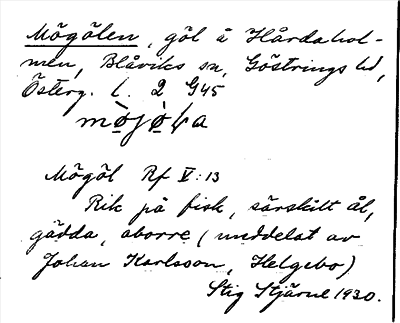 Mögölen, göl å Hårdahol-
men, Blåviks sn, Göstrings hd,
Österg. l. 2 G45
mo̱jo̱ɫa
Mögöl Rf V:13
Rik på fisk, särskilt ål,
gädda, aborre (meddelat av
Johan Karlsson, Helgebo)
Stig Stjärne 1930.